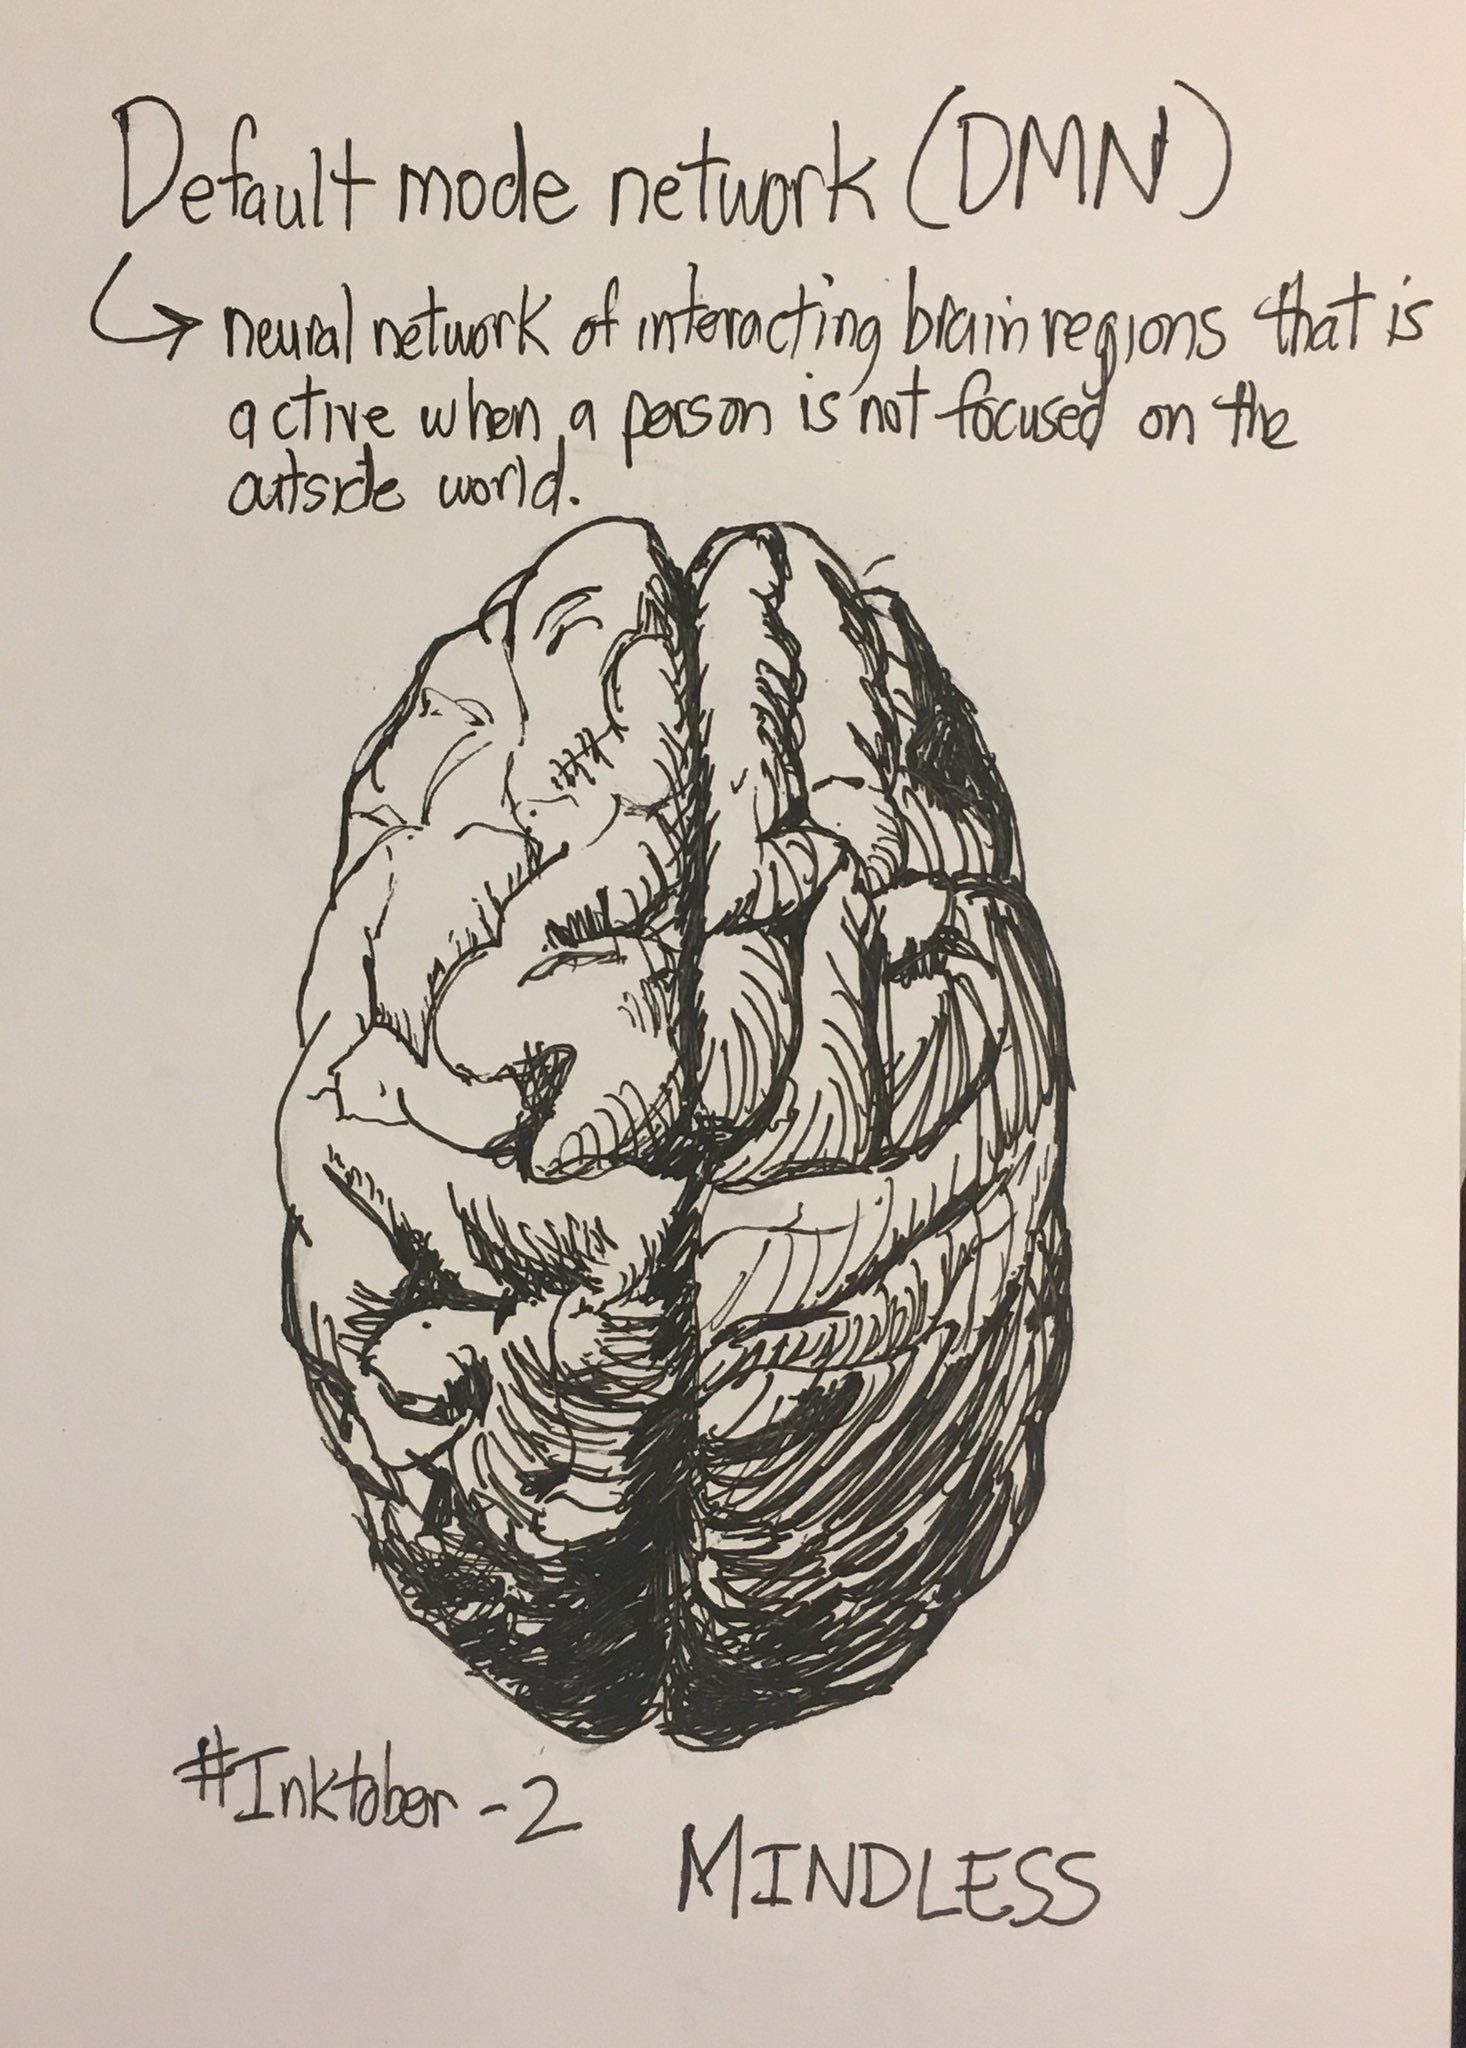 Default mode network (DMN)
neural network of interacting brain regions that is
active when a person is not focused on the
outside world.
#Inktober - 2
MINDLESS